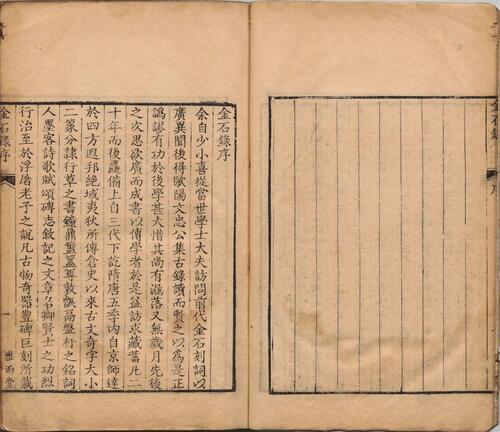 金石錄序
余自少小喜從當世學士大夫訪問前代金石刻詞以
廣異聞後得歐陽文忠公集古錄讀而賢之以為是正
譌謬有功於後學甚大惜其尚有漏落又無歲月先後
之次思欲廣而成書以傳學者於是益訪求藏蓄凡二
十年而後麤備上自三代下訖隋唐五季內自京師達
於四方遐邦絕域夷狄所傳倉史以來古文奇字大小
二篆分隸行草之書鐘鼎簠簋尊敦甗鬲盤杅之銘詞
人墨客詩歌賦頌碑志敘記之文章名卿賢士之功烈
行治至於浮屠老子之說凡古物奇器豐碑巨刻所載
金石錄序
一
雅雨堂
金石錄